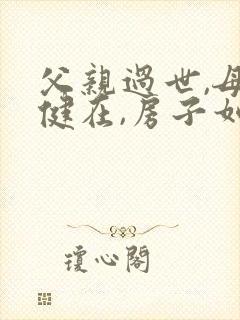 父親過世,母
健在,房子如
瓊心閣